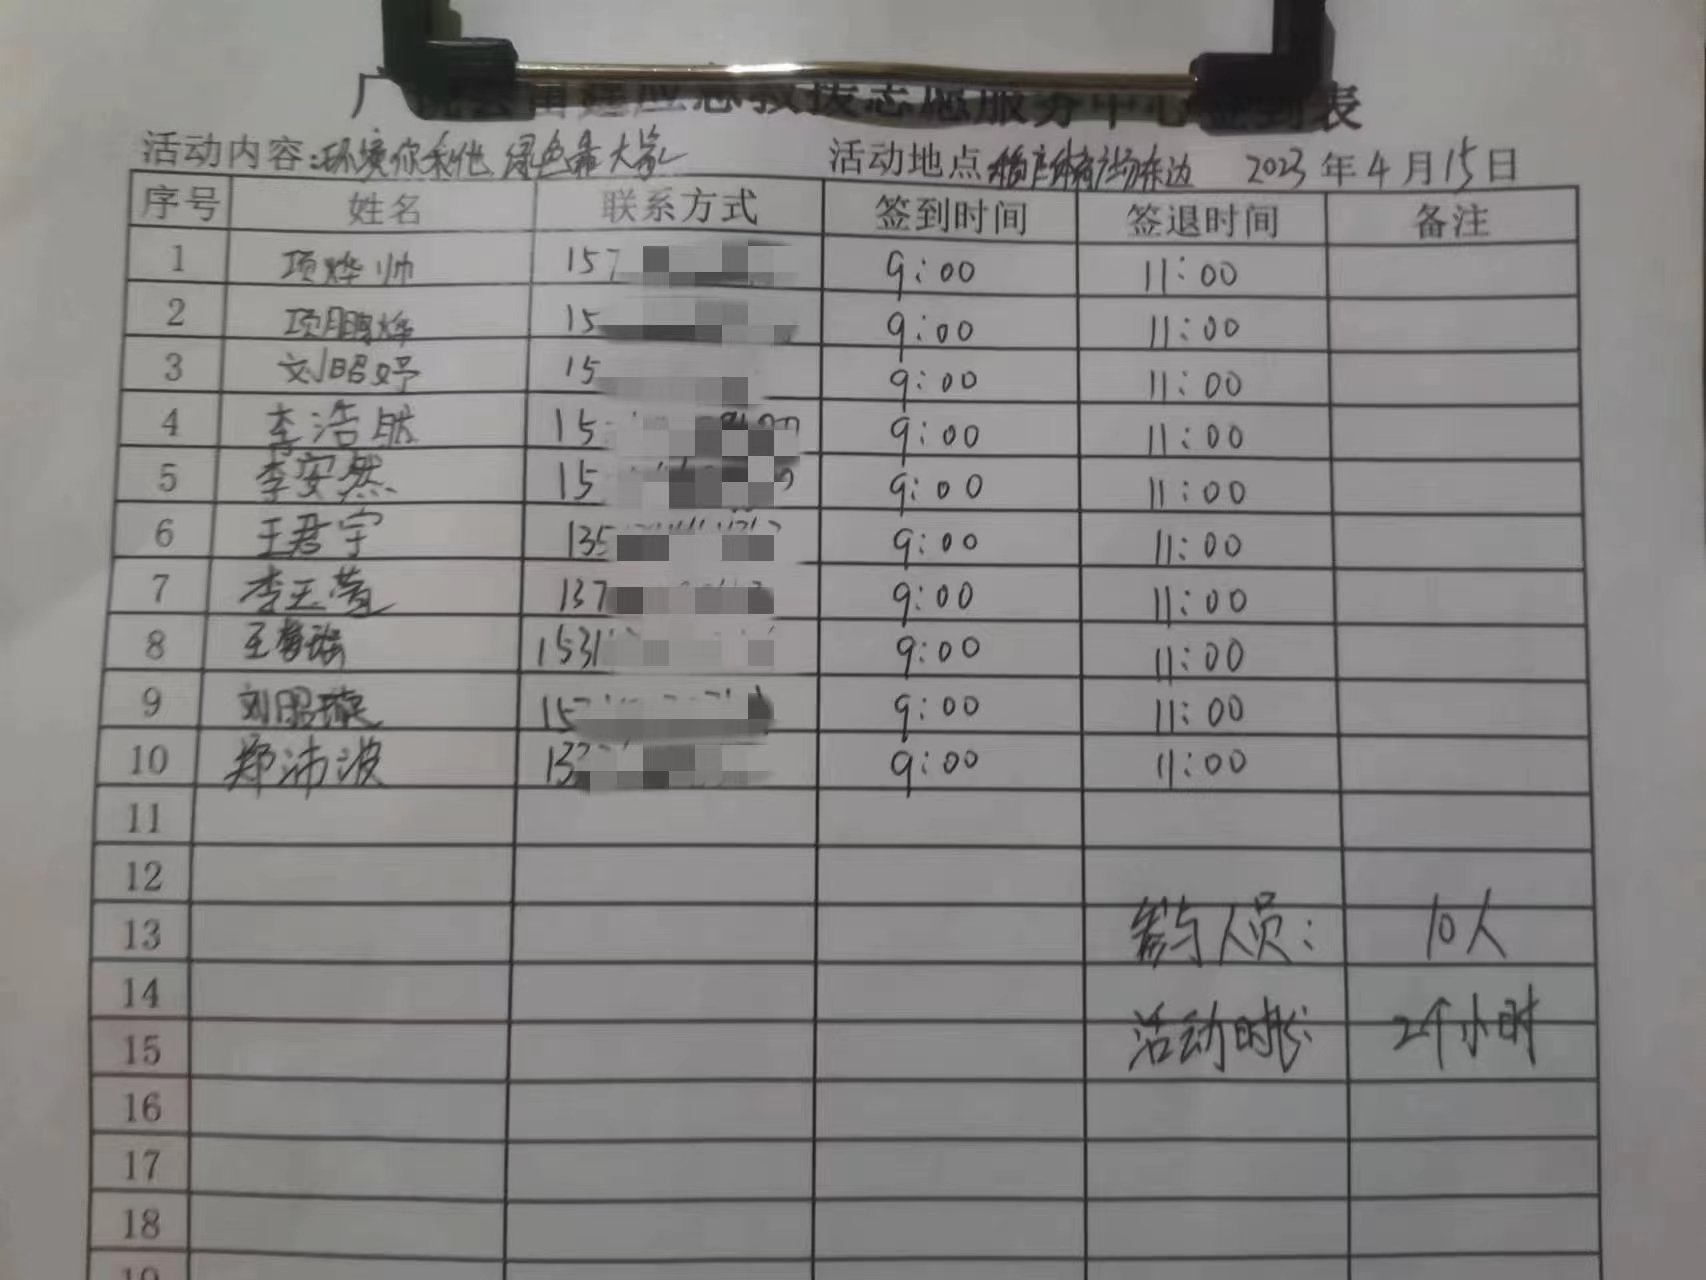 急救援志愿服务中心签到表
活动内容:环境你我他 绿色靠大家 活动地点 体育场东边 2023年4月15日
序号 姓名 联系方式 签到时间 签退时间 备注
1 项烨帅 157 9:00 11:00
2 项鹏烨 15 9:00 11:00
3 刘昭妤 15 9:00 11:00
4 李浩然 15 9:00 11:00
5 李安然 15 9:00 11:00
6 王君宇 135 9:00 11:00
7 李玉莹 137 9:00 11:00
8 1531 9:00 11:00
9 刘昭璇 15 9:00 11:00
10 郑沛波 13 9:00 11:00
11
12
13 参与人员: 10人
14
15 活动时长: 2个小时
16
17
18
19